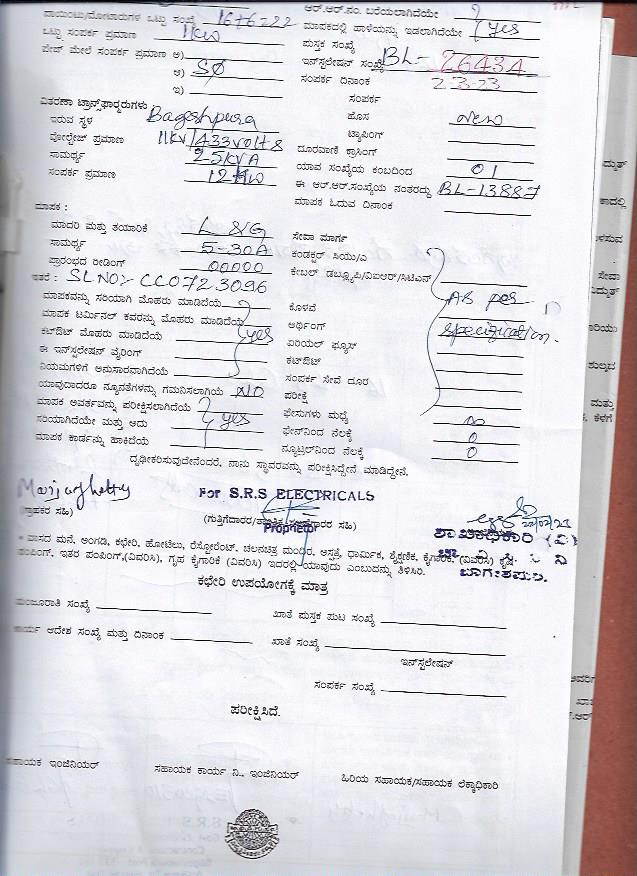 ಪಾಯಿಂಟು/ಮೋಟಾರುಗಳ ಒಟ್ಟು ಸಂಖ್ಯೆ 1676222
ಒಟ್ಟು ಸಂಪರ್ಕ ಪ್ರಮಾಣ 1KW
ಪೇಜ್ ಮೇಲೆ ಸಂಪರ್ಕ ಪ್ರಮಾಣ ಅ)
ಆ) SØ
ಇ)
ಆರ್.ಆರ್.ನಂ. ಬರೆಯಲಾಗಿದೆಯೇ
ಮಾಪಕದಲ್ಲಿ ಹಾಳೆಯನ್ನು ಇಡಲಾಗಿದೆಯೇ yes
ಪುಸ್ತಕ ಸಂಖ್ಯೆ
ಇನ್ಸ್ಟಲೇಷನ್ ಸಂಖ್ಯೆ BL- 26434
ಸಂಪರ್ಕ ದಿನಾಂಕ 2-3-23
ಸಂಪರ್ಕ
ಹೊಸ new
ಟ್ಯಾಪಿಂಗ್
ದೂರವಾಣಿ ಕ್ರಾಸಿಂಗ್
ಯಾವ ಸಂಖ್ಯೆಯ ಕಂಬದಿಂದ 01
ಈ ಆರ್.ಆರ್.ಸಂಖ್ಯೆಯ ನಂತರದ್ದು BL-13887
ಮಾಪಕ ಓದುವ ದಿನಾಂಕ
ವಿತರಣಾ ಟ್ರಾನ್ಸ್‌ಫಾರ್ಮರುಗಳು
ಇರುವ ಸ್ಥಳ Bageshpura
ವೋಲ್ಟೇಜ್ ಪ್ರಮಾಣ 11KV/433volts
ಸಾಮರ್ಥ್ಯ 25KVA
ಸಂಪರ್ಕ ಪ್ರಮಾಣ 12 KW
ಮಾಪಕ :
ಮಾದರಿ ಮತ್ತು ತಯಾರಿಕೆ L & G
ಸಾಮರ್ಥ್ಯ 5-30A
ಪ್ರಾರಂಭದ ರೀಡಿಂಗ್ 00000
ಇತರೆ : SL NO:- CC0723096
ಮಾಪಕವನ್ನು ಸರಿಯಾಗಿ ಮೊಹರು ಮಾಡಿದೆಯೆ
ಮಾಪಕ ಟರ್ಮಿನಲ್ ಕವರನ್ನು ಮೊಹರು ಮಾಡಿದೆಯೆ
ಕಟ್‌ಔಟ್ ಮೊಹರು ಮಾಡಿದೆಯೆ yes
ಈ ಇನ್‌ಸ್ಟಲೇಷನ್ ವೈರಿಂಗ್
ನಿಯಮಗಳಿಗೆ ಅನುಸಾರವಾಗಿದೆಯೆ
ಯಾವುದಾದರೂ ನ್ಯೂನತೆಗಳನ್ನು ಗಮನಿಸಲಾಗಿಯೆ NO
ಮಾಪಕ ಅವರ್ತವನ್ನು ಪರೀಕ್ಷಿಸಲಾಗಿದೆಯೆ
ಸರಿಯಾಗಿದೆಯೇ ಮತ್ತು ಅದು yes
ಮಾಪಕ ಕಾರ್ಡನ್ನು ಹಾಕಿದೆಯೆ
ಸೇವಾ ಮಾರ್ಗ
ಕಂಡಕ್ಟರ್ ಸಿಯು/ಎ
ಕೇಬಲ್ ಡಬ್ಲ್ಯೂಪಿ/ವಿಐಆರ್/ಸಿಟಿಎಸ್
ಕೊಳವೆ AS per
ಅರ್ಥಿಂಗ್
ಏರಿಯಲ್ ಫ್ಯೂಸ್ specification.
ಕಟ್‌ಔಟ್
ಸಂಪರ್ಕ ಸೇವೆ ದೂರ
ಪರೀಕ್ಷೆ
ಫೇಸುಗಳು ಮಧ್ಯೆ ∞
ಫೇಸ್‌ನಿಂದ ನೆಲಕ್ಕೆ 0
ನ್ಯೂಟ್ರಲ್‌ನಿಂದ ನೆಲಕ್ಕೆ 0
ದೃಢೀಕರಿಸುವುದೇನೆಂದರೆ, ನಾನು ಸ್ಥಾವರವನ್ನು ಪರೀಕ್ಷಿಸಿದ್ದೇನೆ ಮಾಡಿದ್ದೇನೆ.
(ಗ್ರಾಹಕರ ಸಹಿ)
For S.R.S ELECTRICALS
Proprietor
ಶಾಖಾಧಿಕಾರಿ (ವಿ)
ಬಾಗೇಶಪುರ.
* ವಾಸದ ಮನೆ, ಅಂಗಡಿ, ಕಛೇರಿ, ಹೋಟೆಲು, ರೆಸ್ಟೋರೆಂಟ್. ಚಲನಚಿತ್ರ ಮಂದಿರ, ಆಸ್ಪತ್ರೆ, ಧಾರ್ಮಿಕ, ಶೈಕ್ಷಣಿಕ, ಕೈಗಾರಿಕೆ, (ವಿವರಿಸಿ) ಕೃಷಿ
ಪಂಪಿಂಗ್, ಇತರ ಪಂಪಿಂಗ್,(ವಿವರಿಸಿ), ಗೃಹ ಕೈಗಾರಿಕೆ (ವಿವರಿಸಿ) ಇದರಲ್ಲಿ ಯಾವುದು ಎಂಬುದನ್ನು ತಿಳಿಸಿರಿ.
ಕಛೇರಿ ಉಪಯೋಗಕ್ಕೆ ಮಾತ್ರ
ಮಂಜೂರಾತಿ ಸಂಖ್ಯೆ
ಖಾತೆ ಪುಸ್ತಕ ಪುಟ ಸಂಖ್ಯೆ
ಕಾರ್ಯ ಆದೇಶ ಸಂಖ್ಯೆ ಮತ್ತು ದಿನಾಂಕ
ಖಾತೆ ಸಂಖ್ಯೆ
ಇನ್‌ಸ್ಟಲೇಷನ್
ಸಂಪರ್ಕ ಸಂಖ್ಯೆ
ಪರೀಕ್ಷಿಸಿದೆ.
ಸಹಾಯಕ ಇಂಜಿನಿಯರ್
ಸಹಾಯಕ ಕಾರ್ಯ ನಿ., ಇಂಜಿನಿಯರ್
ಹಿರಿಯ ಸಹಾಯಕ/ಸಹಾಯಕ ಲೆಕ್ಕಾಧಿಕಾರಿ